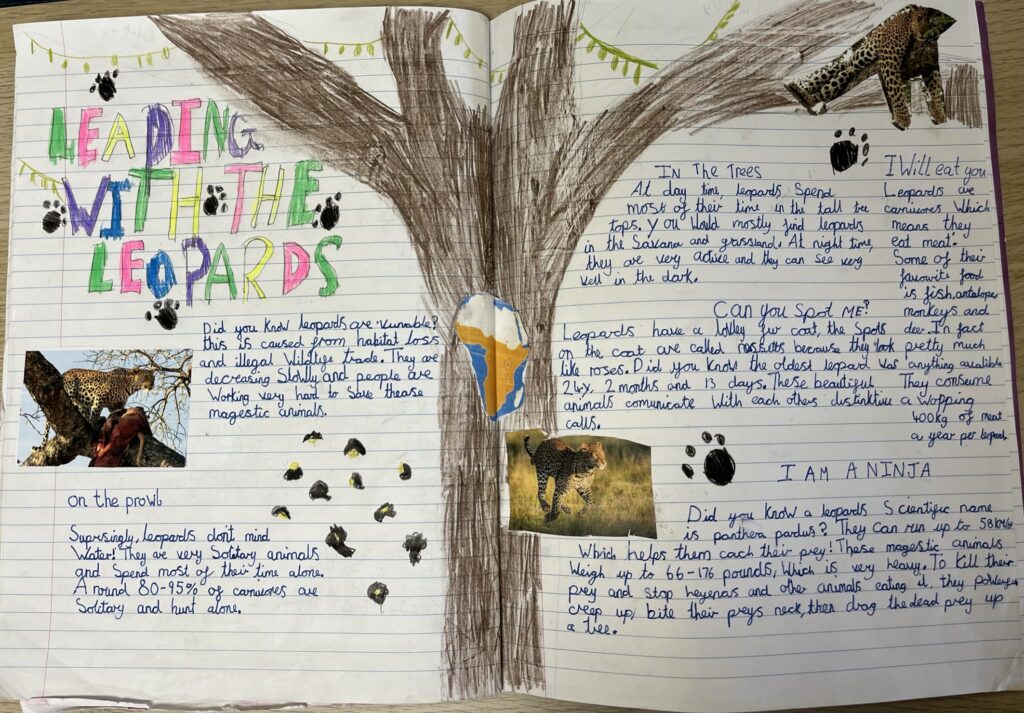 LEADING
WITH THE
LEOPARDS
Did you know leopards are vunable?
this is caused from habitat loss
and illegal Wildlife trade. They are
decreasing Slowly and people are
Working very hard to Save thease
magestic animals.
on the prowl
Suprsingly, leopards don't mind
Water! They are very Solitary animals
and Spend most of their time alone.
Around 80-95% of carnivores are
Solitary and hunt alone.
IN The TREES
At day time, leopards Spend
most of their time in the tall tree
tops. You Would mostly find leopards
in the Savana and grassland. At night time,
they are very active and they can see very
well in the dark.
CAN You Spot ME?
Leopards have a lovley fur coat, the Spots
on the coat are called rossetts because they look pretty much
like roses. Did you Know the oldest leopard was
24y, 2 months and 13 days. These beautiful
animals comunicate With each others distinktive
calls.
I Will eat you
Leopards are
carnivores Which
means they
eat meat.
Some of their
favourite food
is fish, antalopes
monkeys and
deer. In fact
anything audible
They consume
a Wopping
400kg of meat
a year per leopard
I AM A NINJA
Did you know a leopards Scientific name
is panthera pardus? They can run up to 58
Which helps them cach their prey! These magestic animals
Weigh up to 66-176 pounds, Which is very heavy. To Kill their
prey and stop heyenas and other animals eating it, they
creep up, bite their preys neck, then drag the dead prey up
a tree.